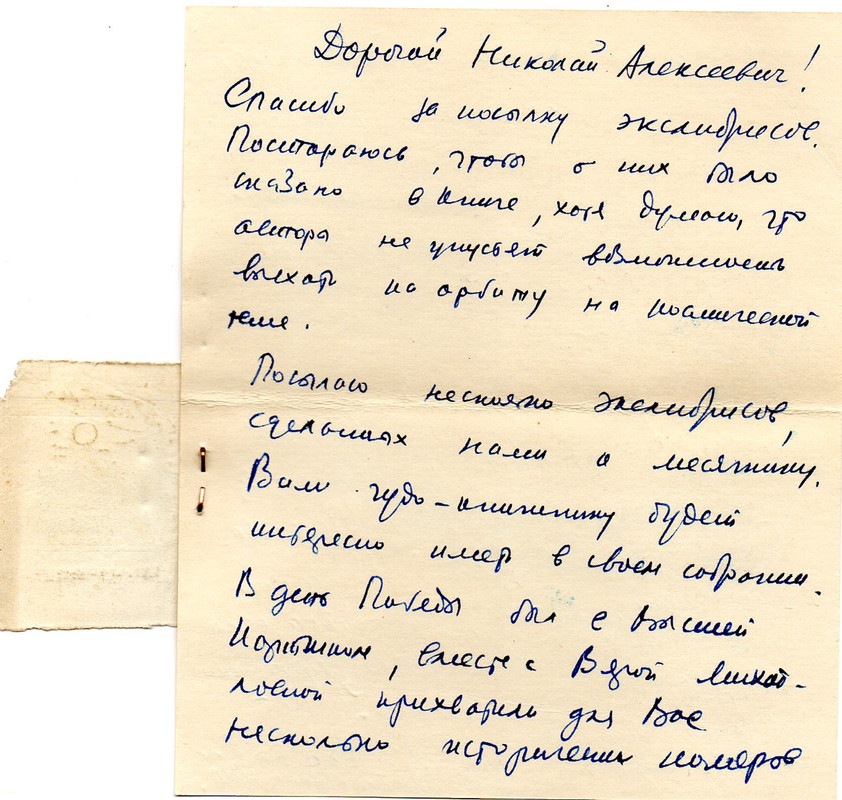 Дорогой Николай Алексеевич!
Спасибо за посылку экслибрисов.
Постараюсь, чтобы о них было
сказано в книге, хотя думаю, что
автора не упустят возможность
выхода на орбиту на космической
теме.
Посылаю несколько экслибрисов,
сделанных нами к месячнику.
Вам чудо-книжнику будет
интересно иметь в своем собрании.
В день Победы был с
вместе с Верой Михай-
ловной прихватили для Вас
несколько исторических номеров